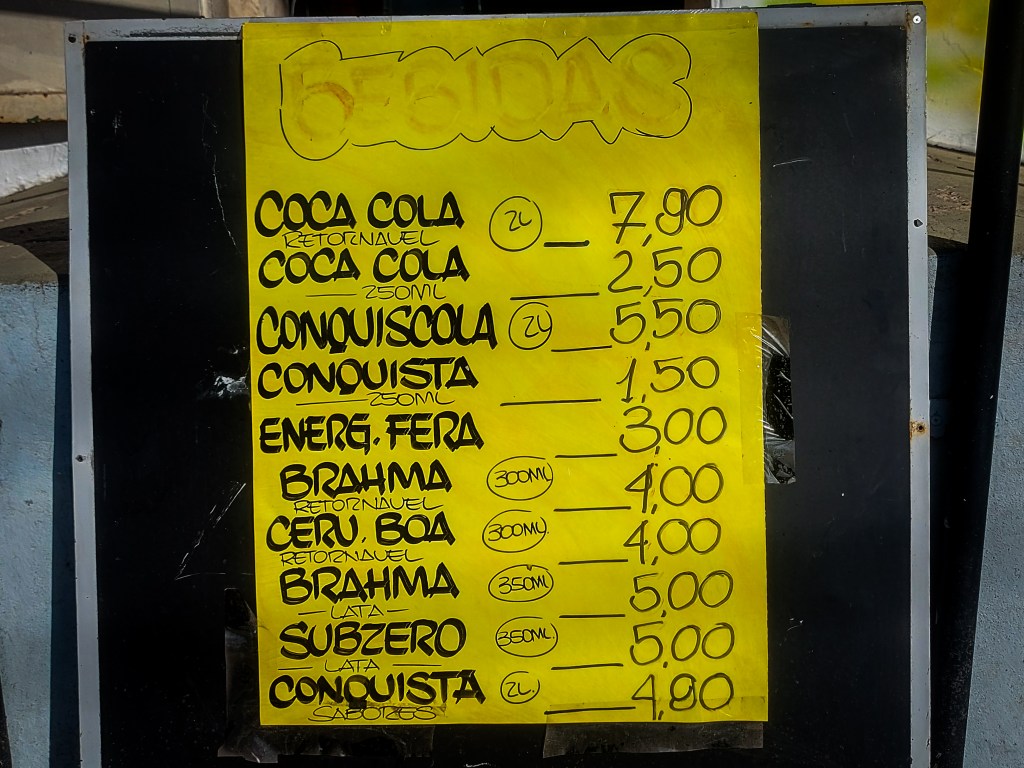 BEBIDAS
COCA COLA 2L 7,90
RETORNAVEL
COCA COLA 2,50
250ML
CONQUISCOLA 2L 5,50
CONQUISTA 1,50
250ML
ENERG. FERA 3,00
BRAHMA 300ML 4,00
RETORNAVEL
CERV. BOA 300ML. 4,00
RETORNAVEL
BRAHMA 350ML 5,00
LATA
SUBZERO 350ML. 5,00
LATA
CONQUISTA 2L. 4,90
SABORES